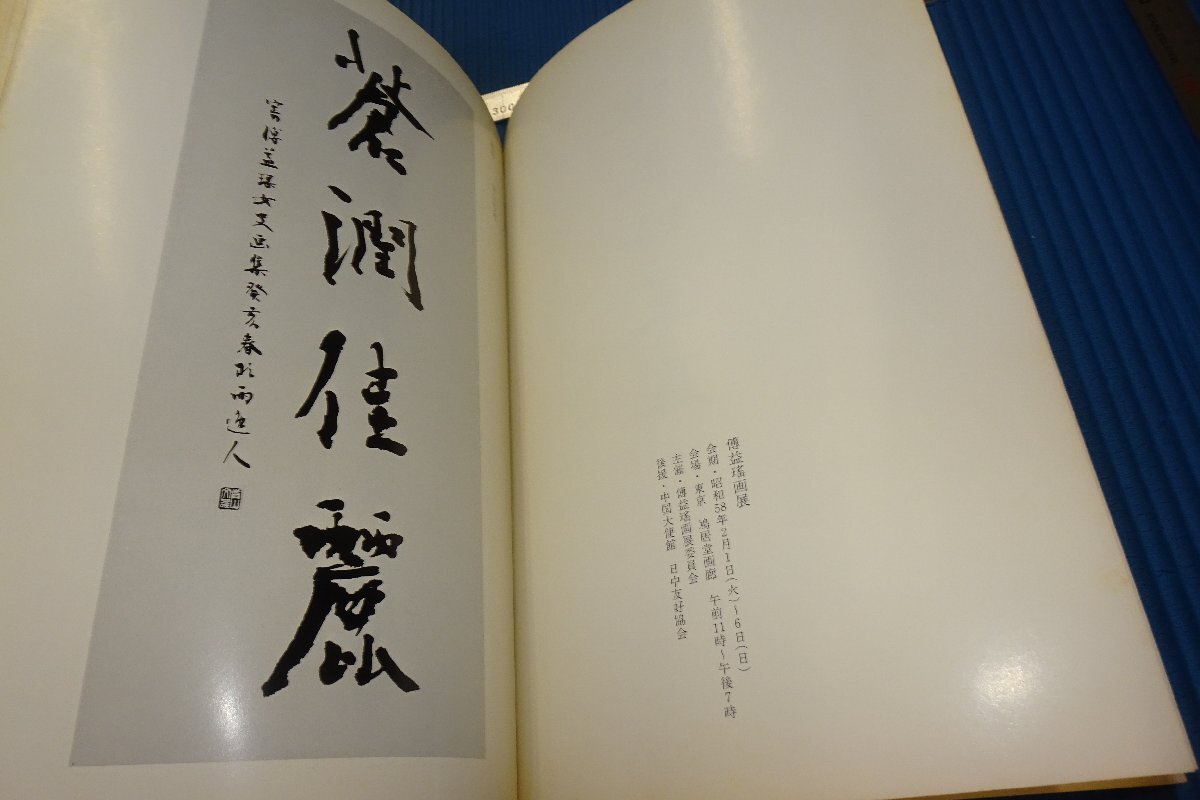 蒼潤佳麗
寄傅益瑶女史画集癸亥春時雨逸人
傅益瑤画展
会期・昭和58年2月1日(火)～6日(日)
会場・東京　鳩居堂画廊　午前11時～午後7時
主催・傅益瑤画展委員会
後援・中国大使館　日中友好協会
300